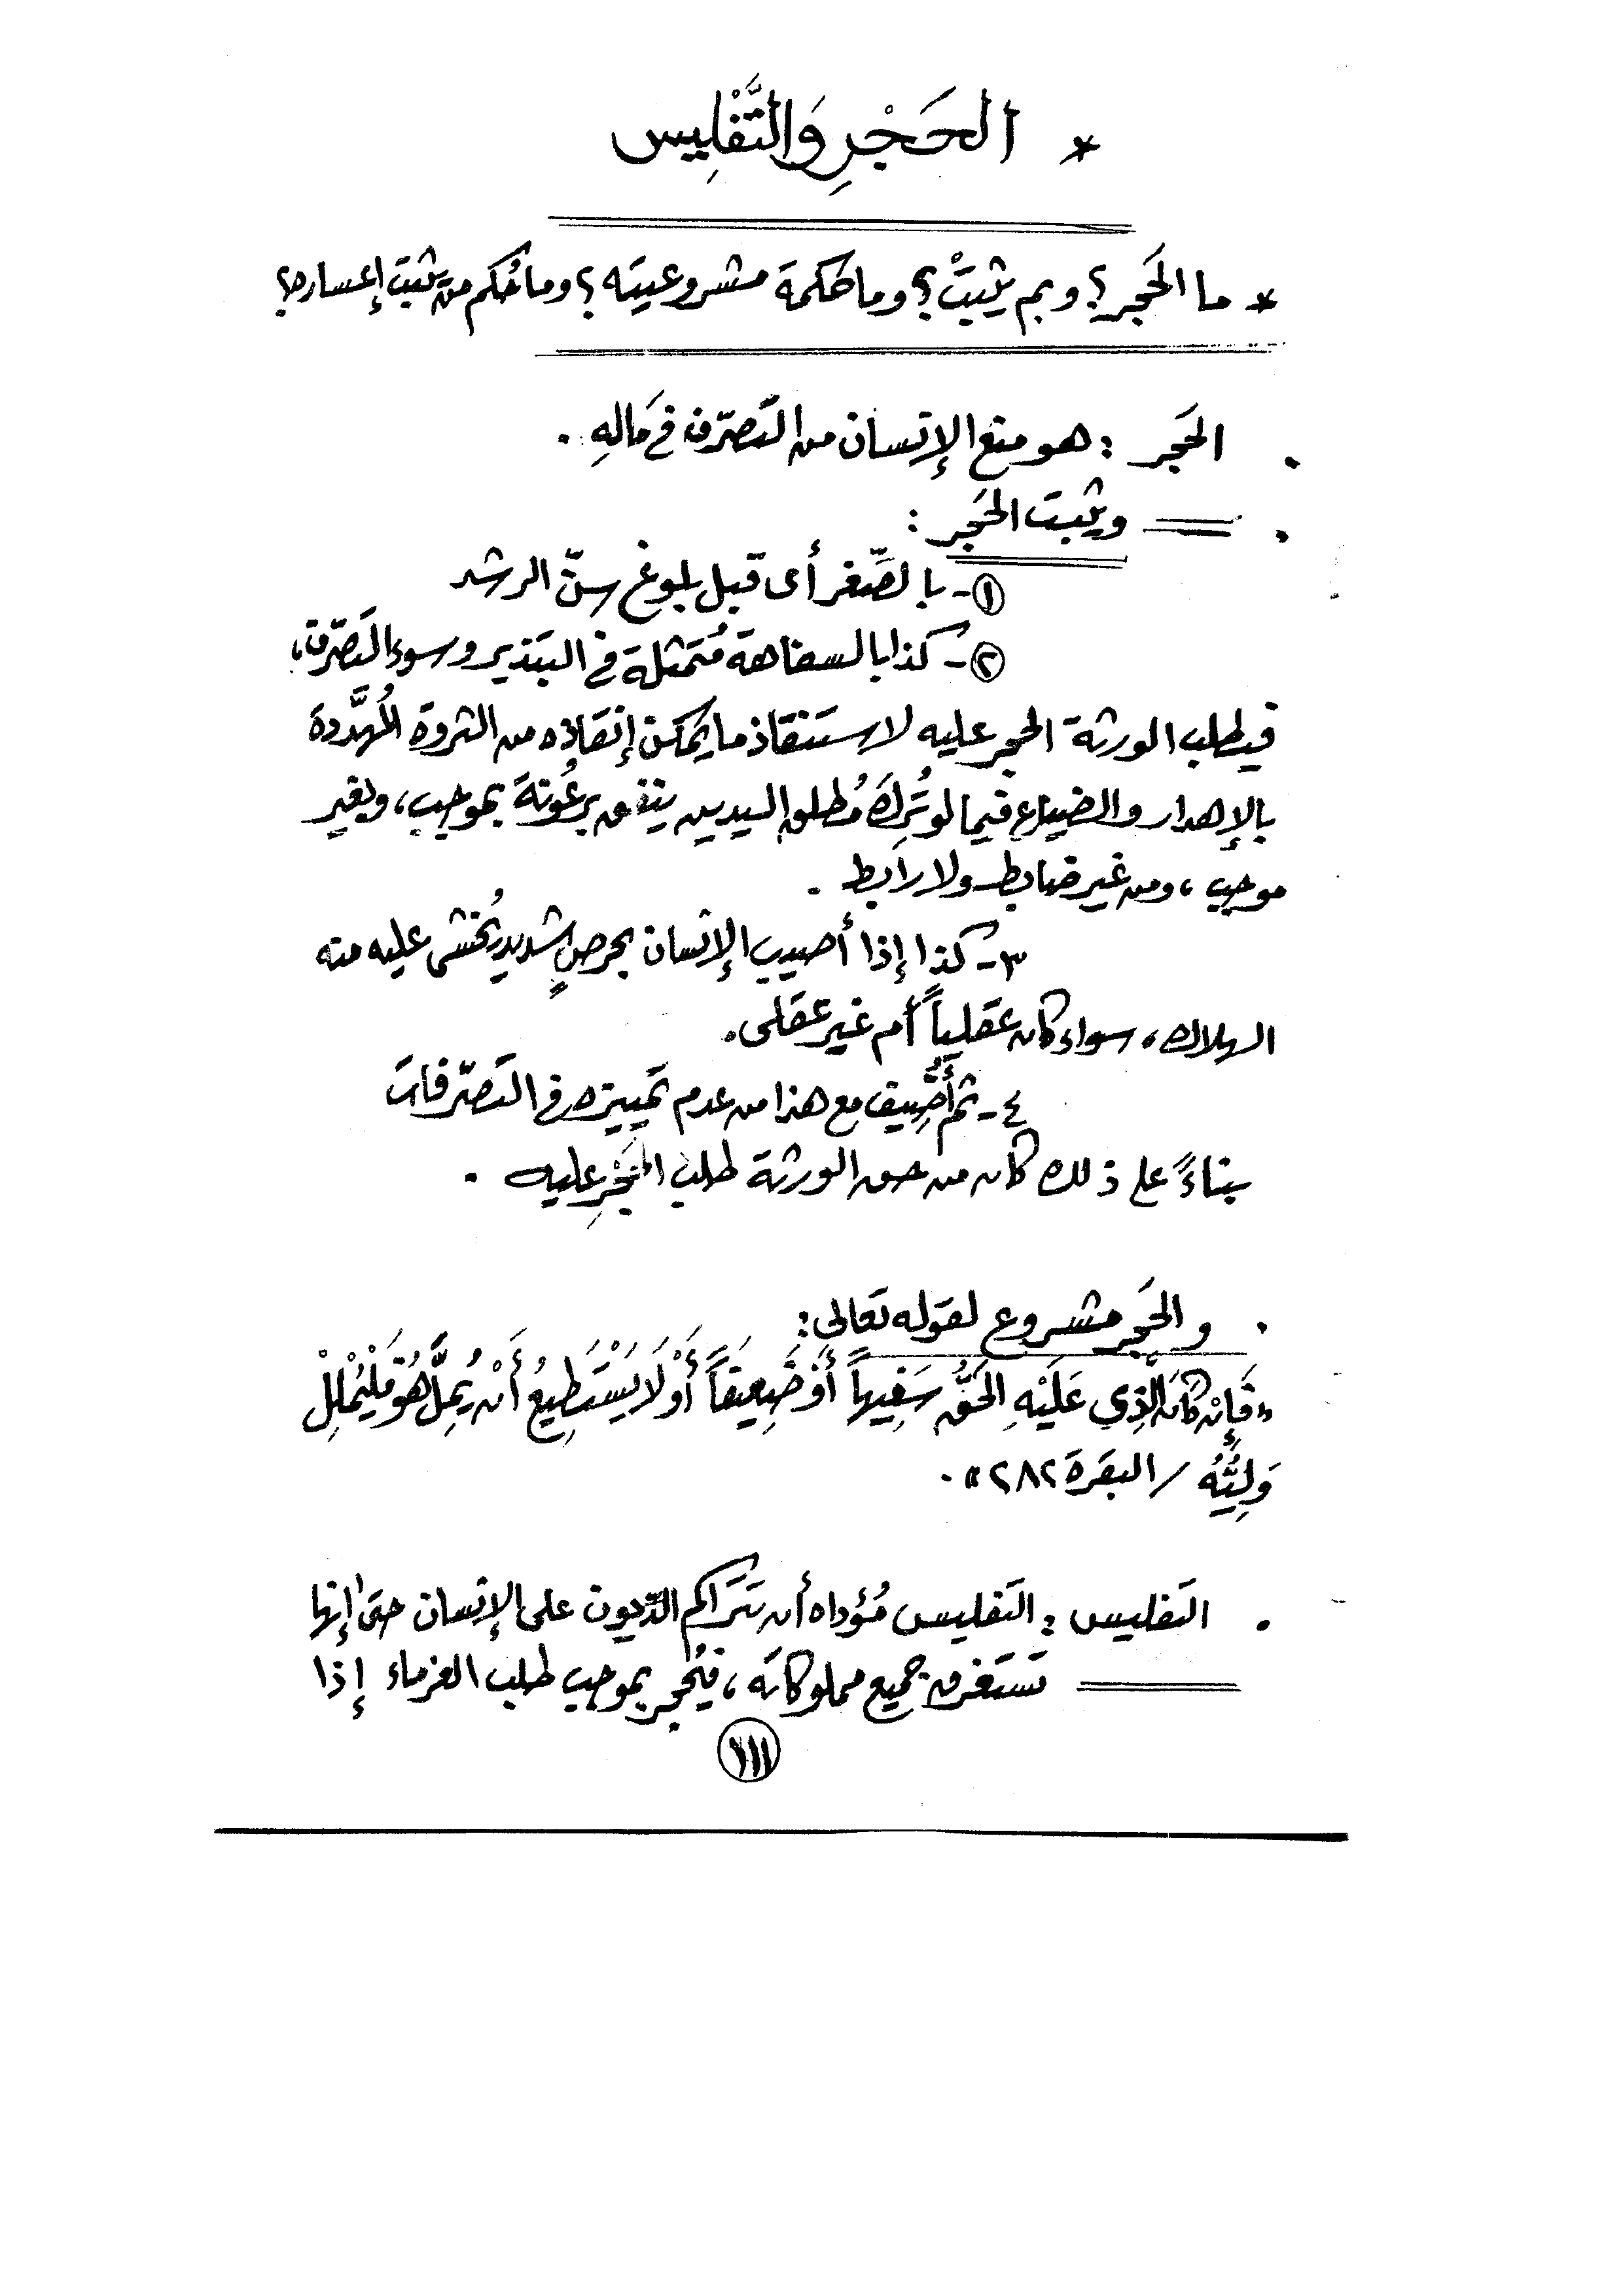 * الحَجْرِ وَالتَّفْلِيس
* ما الحَجر؟ وبم يثبتْ؟ وما حكمةَ مشروعيته؟ وما حُكم من يثبت إعساره؟
. الحَجر : هو منع الإنسان من التَصرّف في مَالهِ .
. ويثبت الحَجر :
١- بالصِّغر أى قبل بلوغ سنّ الرشد
٢- كذا بالسفاهة مُتَمثلة في التبذير وسوء التَصرّف،
فيطلب الورثة الحجر عليه لاستنقاذ ما يمكن إنقاذه من الثروة المُهدَّدة
بالإهدار والضياع فيما لو تُرِكَ مُطلق اليدين ينفق برعُونةً بموجب، وبغير
موجب، ومن غير ضابط ولا رابط .
٣- كذا إذا أصيب الإنسان بمرضٍ شديد يُخشى عليه منه
الهلاك، سواء كان عقلياً أم غير عقلى.
٤- ثم أُضِيف مع هذا من عدم تمييزه في التَصرّفات
بناءً على ذلك كان من حق الورثة طلب الحَجْرِ عليه .
. والحَجر مشروع لقوله تعالى:
«فَإِنْ كَانَ الَّذِي عَلَيْهِ الحَقُّ سَفِيهاً أَوْ ضَعِيفاً أَوْ لَا يَسْتَطِيعُ أَنْ يُمِلَّ هُوَ فَلْيُمْلِلْ
وَلِيُّهُ / البقرة ٢٨٢» .
. التَفليس : التَفليس مُؤداه أن تتَراكم الدّيون على الإنسان حتى إنها
تَستَغرق جميع مملوكاته، فيُحجر بموجب طلب الغرماء إذا
١١١